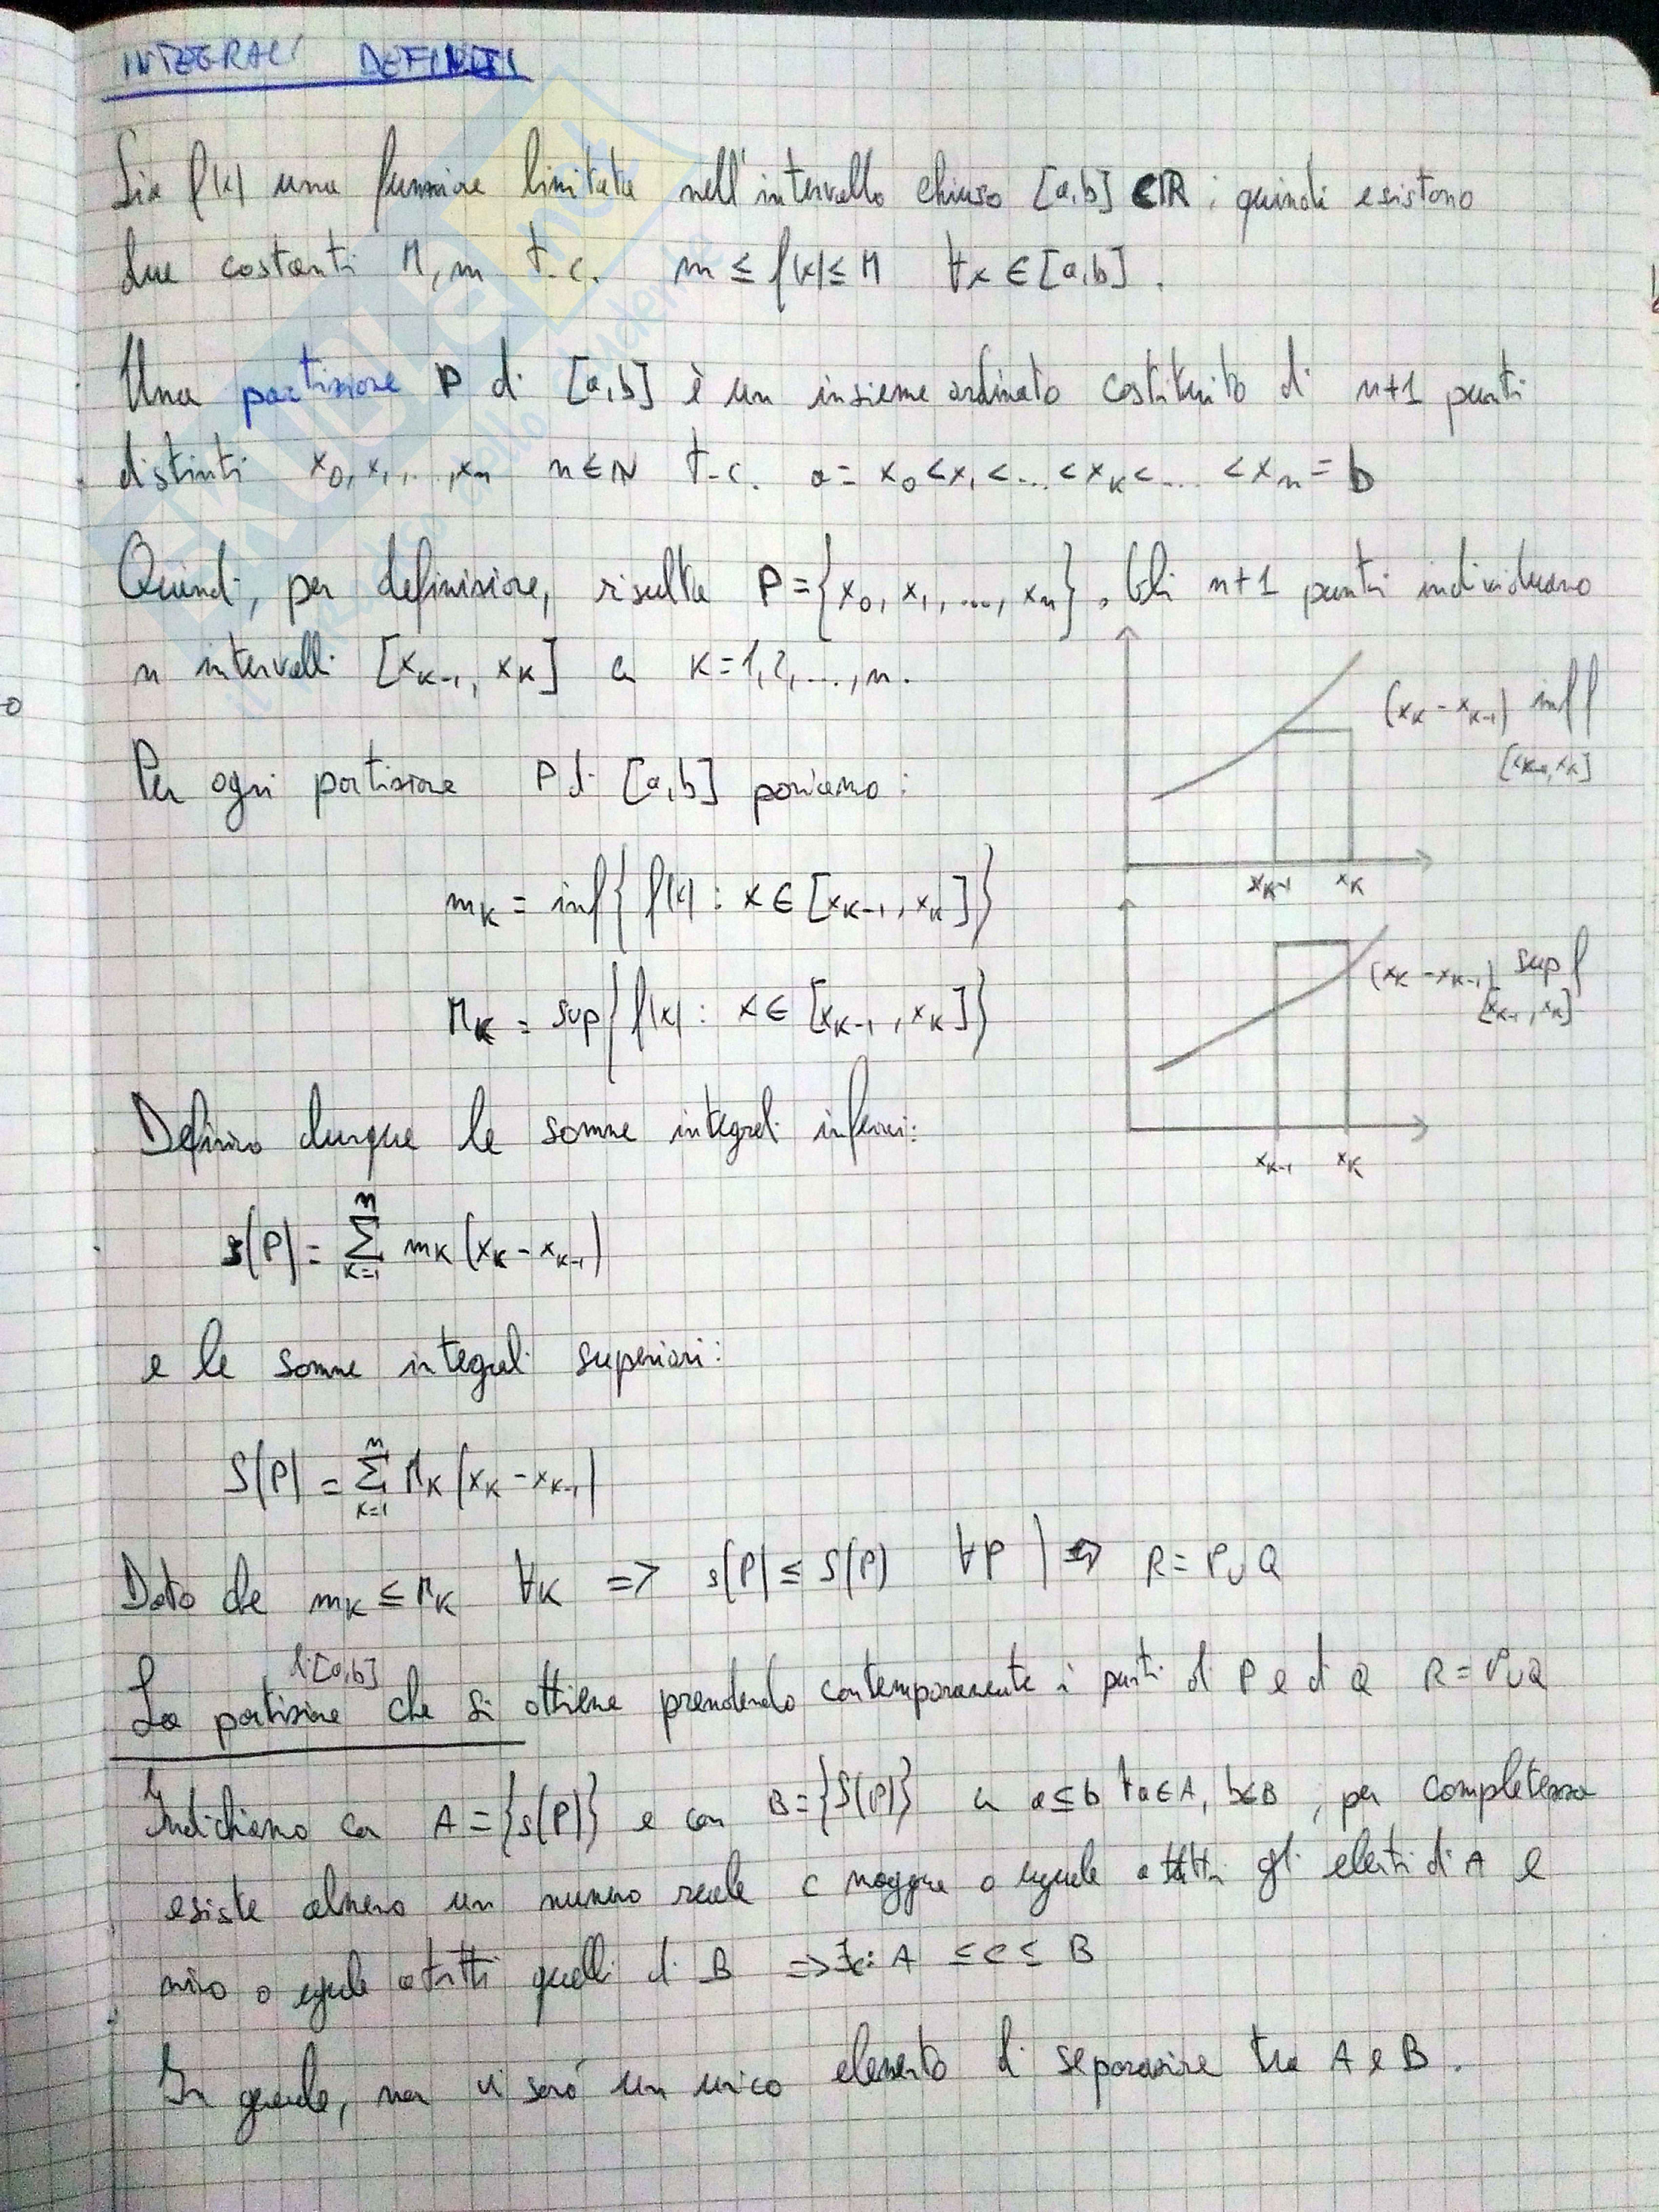 INTEGRALI DEFINITI
Sia f(x) una funzione limitata nell'intervallo chiuso [a,b] ⊂ ℝ; quindi esistono
due costanti M, m t.c. m ≤ f(x) ≤ M ∀x ∈ [a,b].
Una partizione P di [a,b] è un insieme ordinato costituito di n+1 punti
distinti x₀, x₁, ..., xₙ n ∈ N t.c. a = x₀ < x₁ < ... < x_K < ... < xₙ = b
Quindi, per definizione, risulta P = {x₀, x₁, ..., xₙ}. Gli n+1 punti individuano
n intervalli [x_{K-1}, x_K] con K = 1, 2, ..., n.
(x_K - x_{K-1}) inf f
[x_{K-1}, x_K]
Per ogni partizione P di [a,b] poniamo:
x_{K-1} x_K
m_K = inf{ f(x) : x ∈ [x_{K-1}, x_K] }
(x_K - x_{K-1}) sup f
[x_{K-1}, x_K]
M_K = sup{ f(x) : x ∈ [x_{K-1}, x_K] }
Definisco dunque le somme integrali inferiori:
x_{K-1} x_K
s(P) = Σ_{K=1}^{n} m_K (x_K - x_{K-1})
e le somme integrali superiori:
S(P) = Σ_{K=1}^{n} M_K (x_K - x_{K-1})
Dato che m_K ≤ M_K ∀K => s(P) ≤ S(P) ∀P | => R = P ∪ Q
di [a,b]
La partizione che si ottiene prendendo contemporaneamente i punti di P e di Q R = P ∪ Q
Indichiamo con A = {s(P)} e con B = {S(P)} con a ≤ b ∀a ∈ A, b ∈ B, per completezza
esiste almeno un numero reale c maggiore o uguale a tutti gli elementi di A e
minore o uguale a tutti quelli di B => ∃c: A ≤ c ≤ B
In generale, non vi sarà un unico elemento di separazione tra A e B.